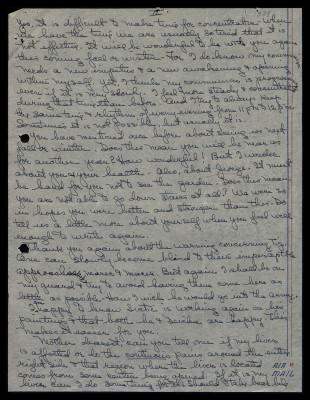 Yes, it is difficult to make time for concentration when
we have the time we are usually so tired that it is
not effective. It will be wonderful to be with you again
this coming fall or winter. For I do know my
needs a new impetus & a new awakening & opening
within myself. Yet, I think my consciousness is progressing
even if it is very slowly. I feel more steady & concentrated
during that time than before. And I try to always keep
the same time & rhythms of every evening from 11 P.M. to 12 P.M.
Sometimes it is not possible, but usually it is.
You have mentioned once before about seeing us next
fall or winter. Does this mean you will be near us
for another year? How wonderful! But I wonder
about you & your health. Also, about George. It must
be hard for you not to see the garden. Does this mean
you are not able to go down stairs at all? We were so
in hopes you were better and stronger than this. Do
tell us a little more about yourself when you feel well
enough to write again.
Thank you again about the warning concerning
One can slowly become blind & these imperceptible
approaches nearer & nearer. But again I shall be on
my guard & try to avoid having them come here as
little as possible. How I wish he would go into the army.
Happy to know Sister is working again on her
painting & that both he & are happy. This
makes it easier for you.
Mother dearest, can you tell me if my liver
is affected or do the continuous pains around the entire
right side & that region where the liver is located
comes from some center being opened? If it is my
liver can I do something for it? Should I take beet
AIR
MAIL